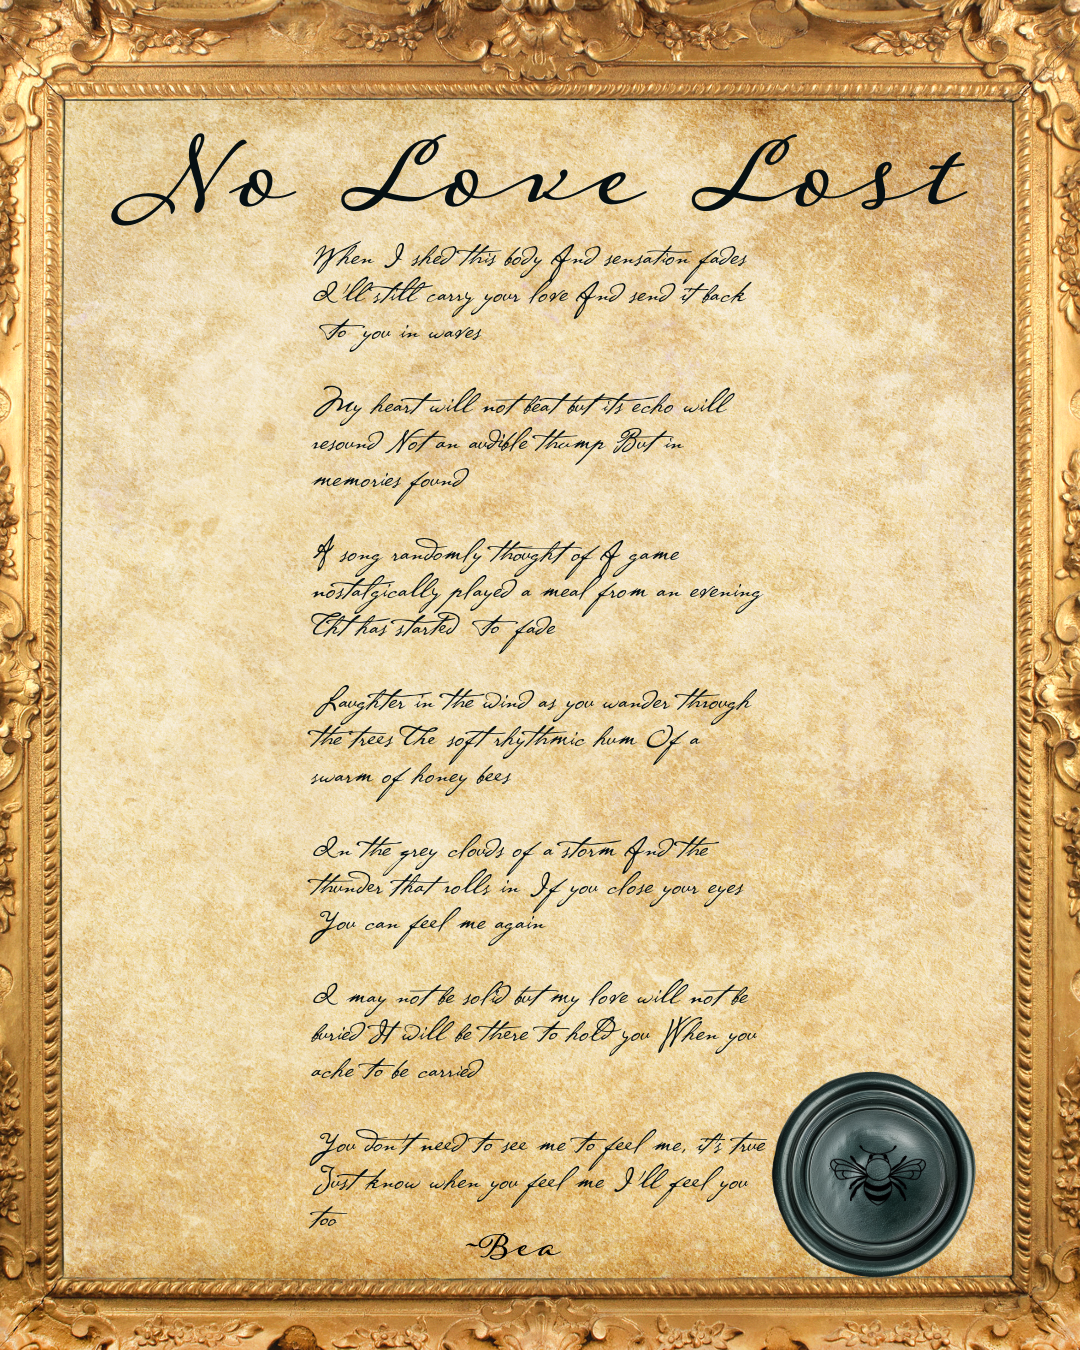 No Love Lost
When I shed this body And sensation fades
I'll still carry your love And send it back
To you in waves
My heart will not beat but its echo will
resound Not an audible thump But in
memories found
A song randomly thought of A game
nostalgically played a meal from an evening
Tht has started to fade
Laughter in the wind as you wander through
the trees The soft rhythmic hum Of a
swarm of honey bees
In the grey clouds of a storm And the
thunder that rolls in If you close your eyes
You can feel me again
I may not be solid but my love will not be
buried It will be there to hold you When you
ache to be carried
You don't need to see me to feel me, it's true
Just know when you feel me I'll feel you
too
~Bea